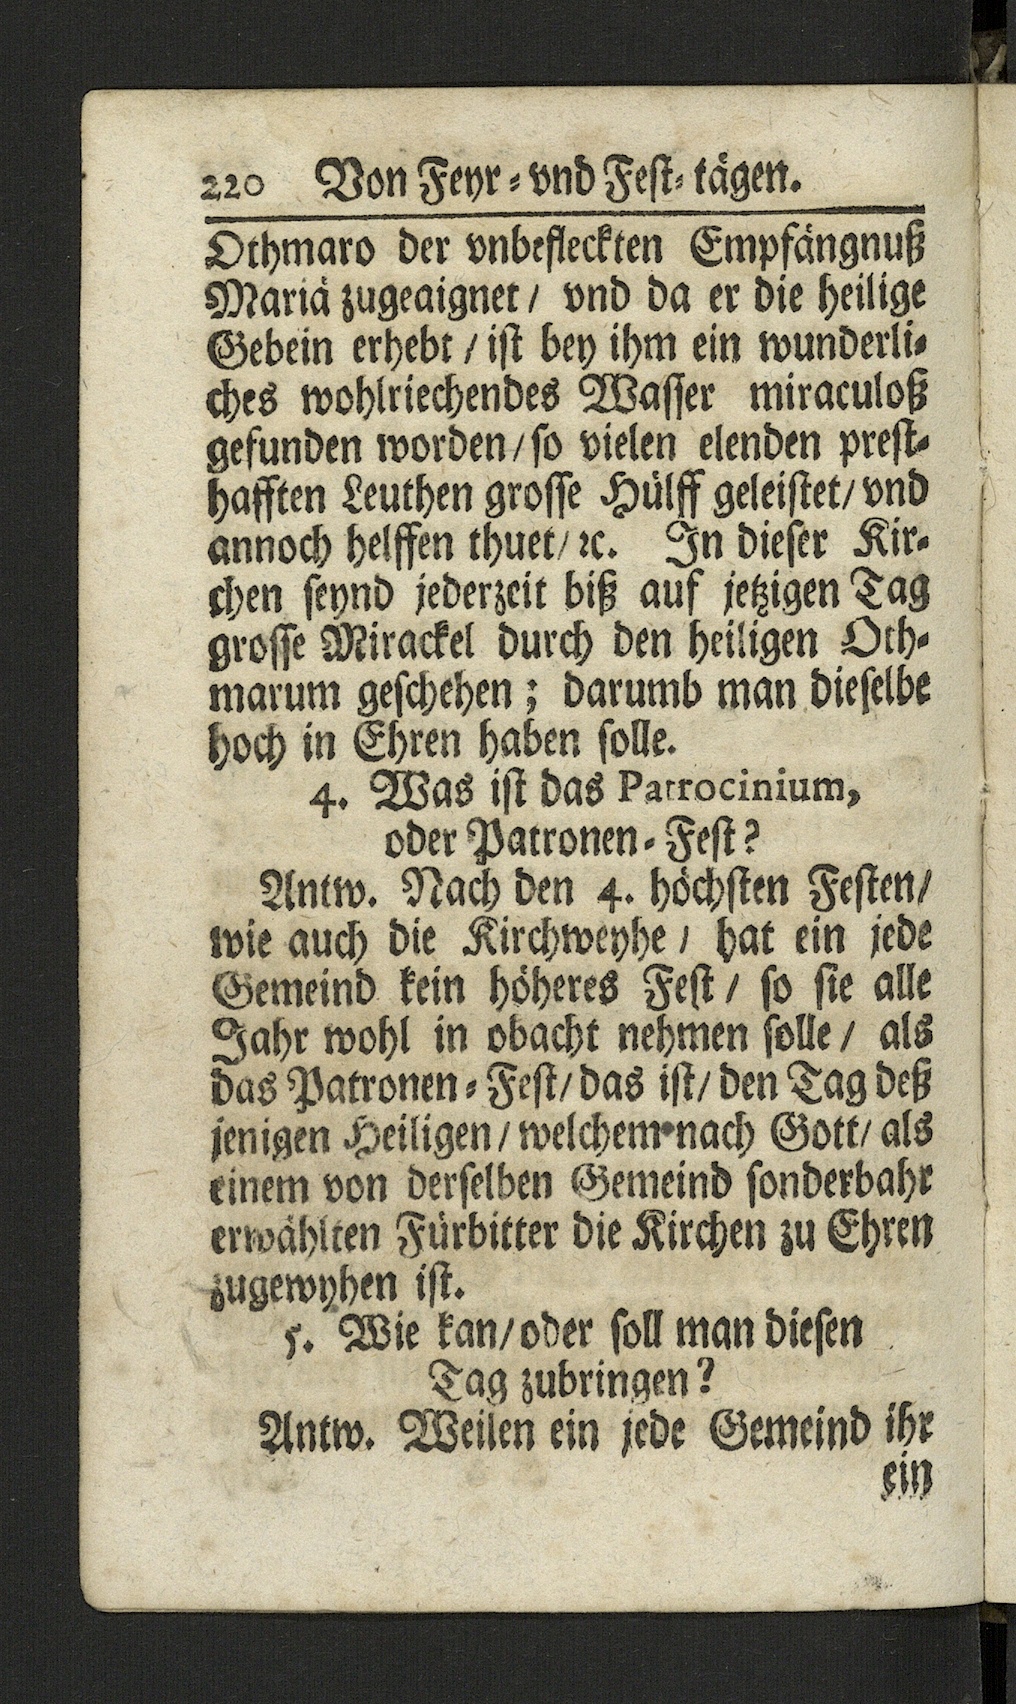 220 Von Feyr-vnd Fest-tägen.
Othmaro der vnbefleckten Empfängnuß
Mariä zugeaignet / vnd da er die heilige
Gebein erhebt / ist bey ihm ein wunderli-
ches wohlriechendes Wasser miraculoß
gefunden worden / so vielen elenden prest-
hafften Leuthen grosse Hülff geleistet / vnd
annoch helffen thuet / ꝛc. In dieser Kir-
chen seynd jederzeit biß auf jetzigen Tag
grosse Mirackel durch den heiligen Oth-
marum geschehen; darumb man dieselbe
hoch in Ehren haben solle.
4. Was ist das Patrocinium,
oder Patronen-Fest?
Antw. Nach den 4. höchsten Festen /
wie auch die Kirchweyhe / hat ein jede
Gemeind kein höheres Fest / so sie alle
Jahr wohl in obacht nehmen solle / als
das Patronen-Fest / das ist / den Tag deß
jenigen Heiligen / welchem nach Gott / als
einem von derselben Gemeind sonderbahr
erwählten Fürbitter die Kirchen zu Ehren
zugewyhen ist.
5. Wie kan / oder soll man diesen
Tag zubringen?
Antw. Weilen ein jede Gemeind ihr
ein